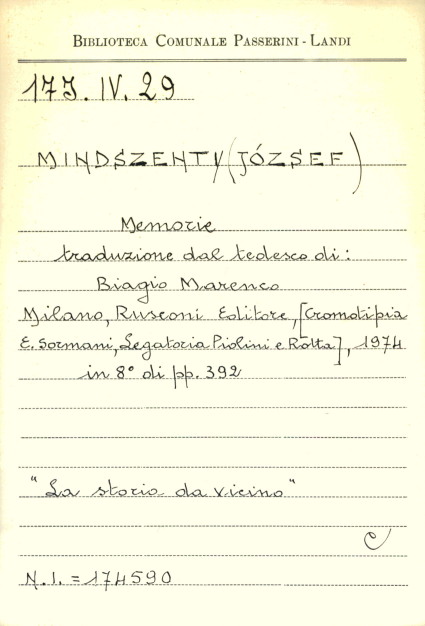 BIBLIOTECA COMUNALE PASSERINI - LANDI
17J. IV. 29
MINDSZENTY (JÓZSEF)
Memorie
traduzione dal tedesco di:
Biagio Marenco
Milano, Rusconi Editore, [Cromotipia
E. Sormani, Legatoria Piolini e Rotta], 1974
in 8° di pp. 392
"La storia da vicino"
C
N.I. = 174590